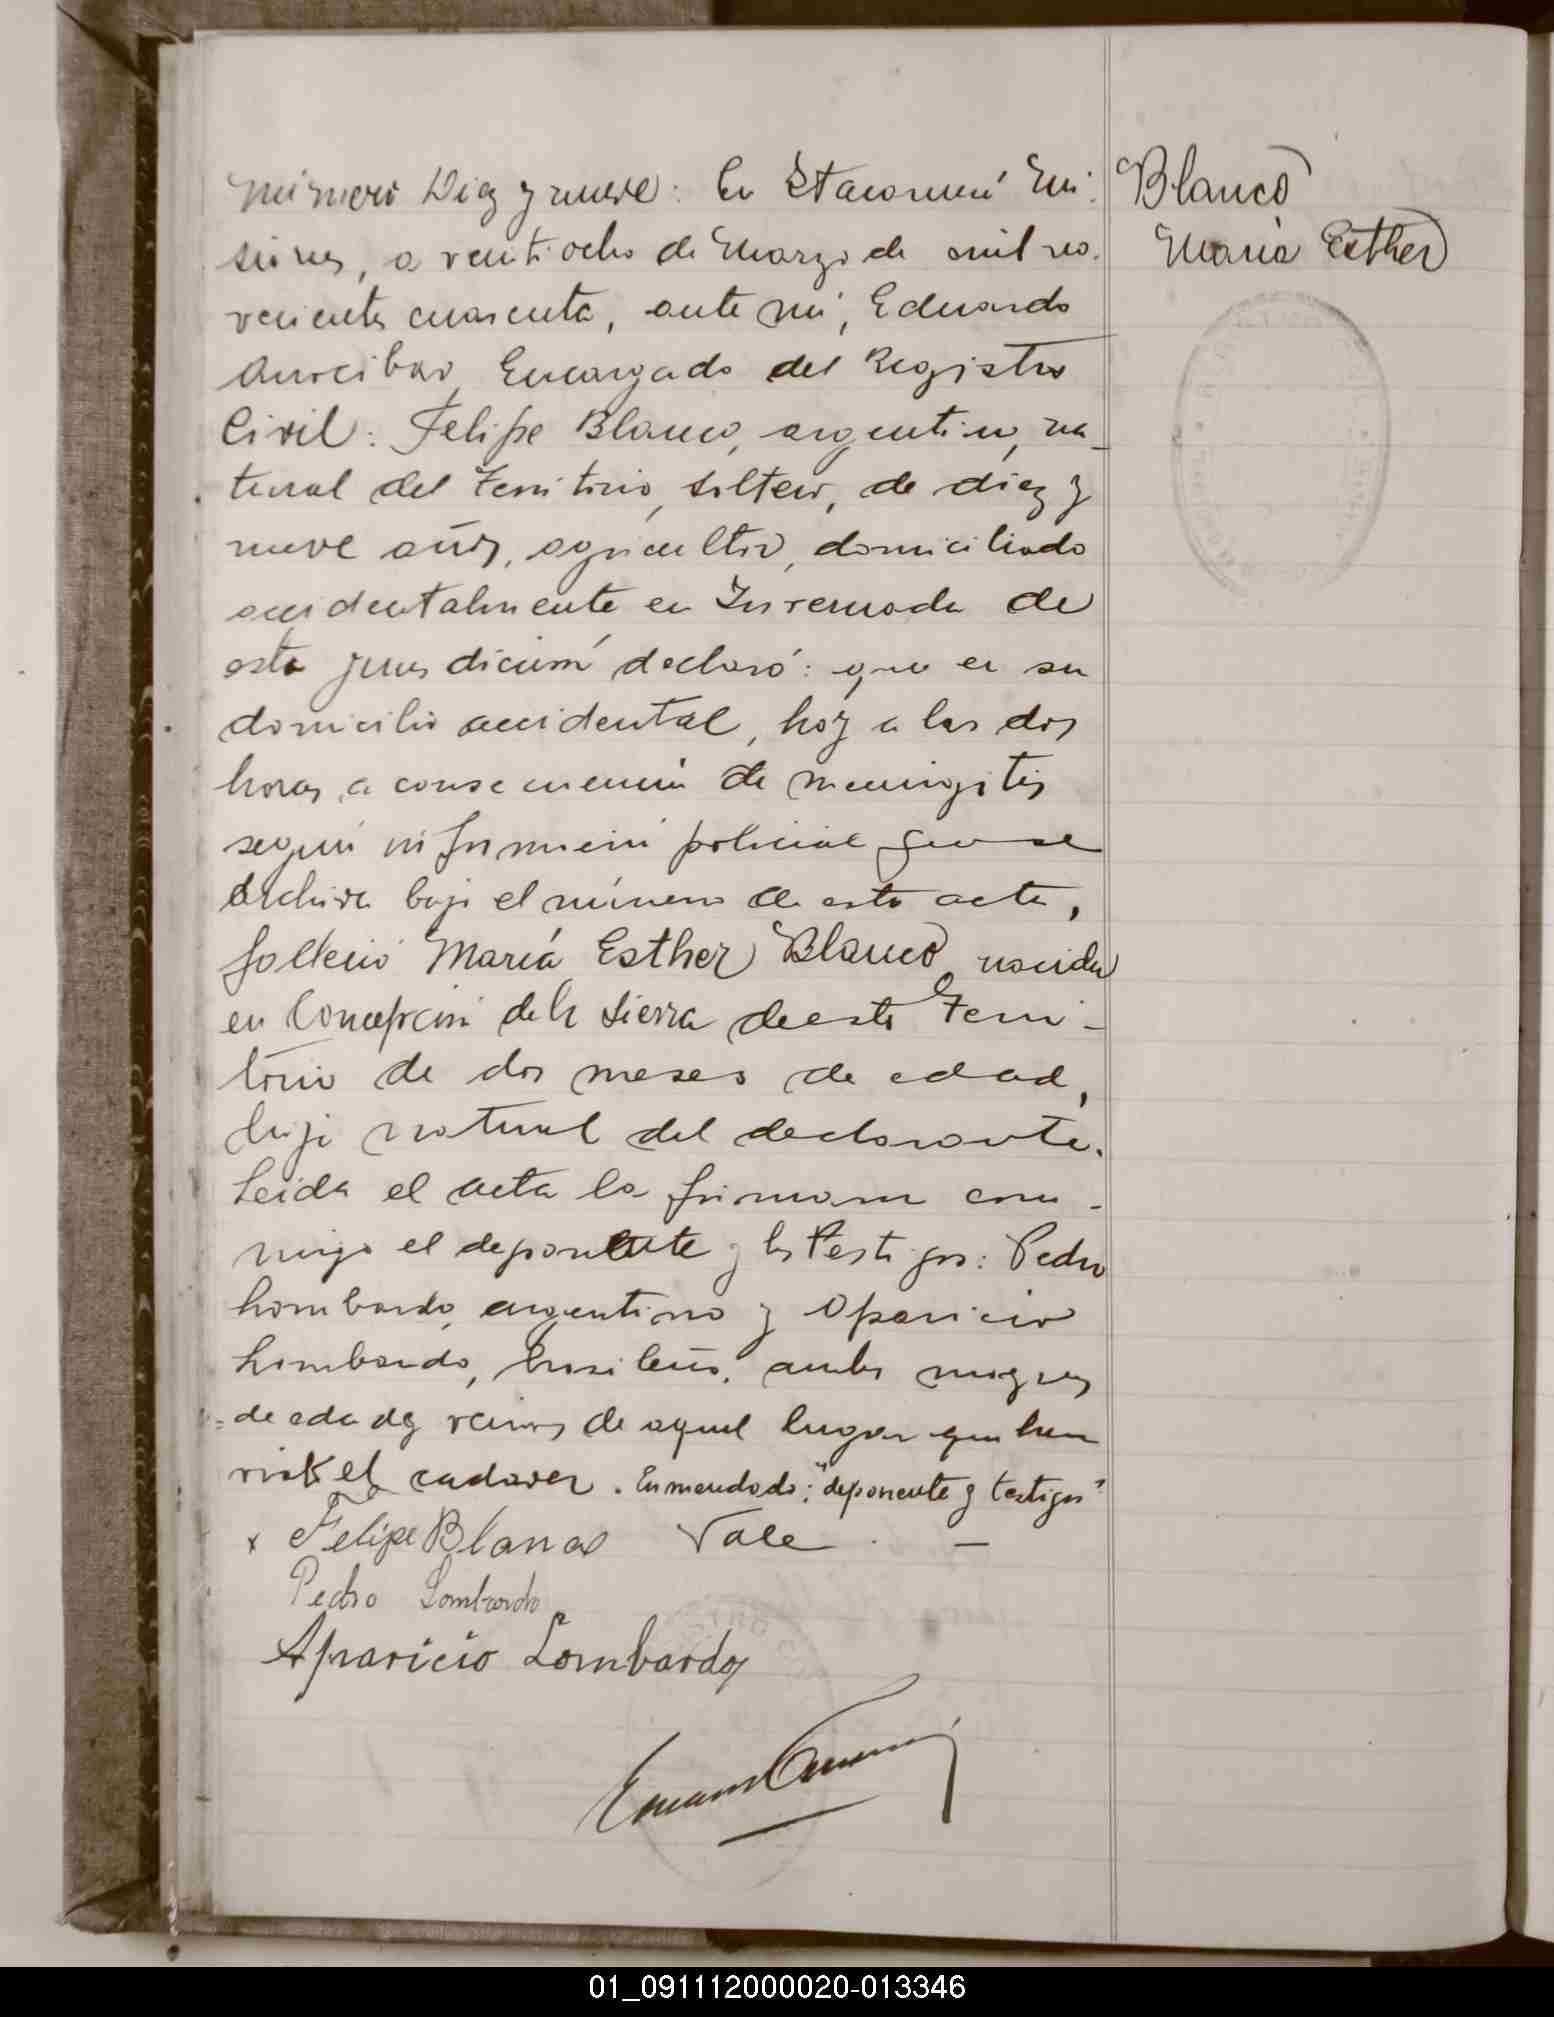 Número Diez y nueve: En Itacaruaré Mi-
siones, a veintiocho de Marzo de mil no-
vecientos cuarenta, ante mí, Eduardo
Encargado del Registro
Civil: Felipe Blanco, argentino, na-
tural del Territorio, soltero, de diez y
nueve años, agricultor, domiciliado
accidentalmente en Invernada de
esta jurisdicción declaró: que en su
domicilio accidental, hoy a las dos
horas, a consecuencia de meningitis
según información policial que se
archiva bajo el número de esta acta,
falleció María Esther Blanco, nacida
en Concepción de la Sierra de este Terri-
torio de dos meses de edad,
hija natural del declarante.
Leida el acta la firmaron con-
migo el deponente y los testigos: Pedro
Lombardo, argentino y Aparicio
Lombardo, brasileño, ambos mayores
de edad y vecinos de aquel lugar que han
visto el cadaver. Enmendado: "deponente y testigos"
x Felipe Blanco Vale. —
Pedro Lombardo
Aparicio Lombardo
Blanco
María Esther
01_091112000020-013346